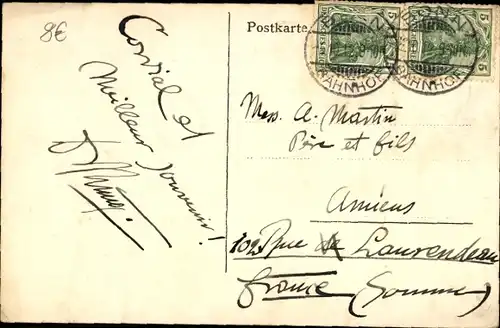 8€
Cordial et
Meilleur Souvenir!
Postkarte
5
5
BAHNHOF
BAHNHOF
Mess. A. Martin
Père et fils
Amiens
102 Rue de Laurendeau
France (Somme)